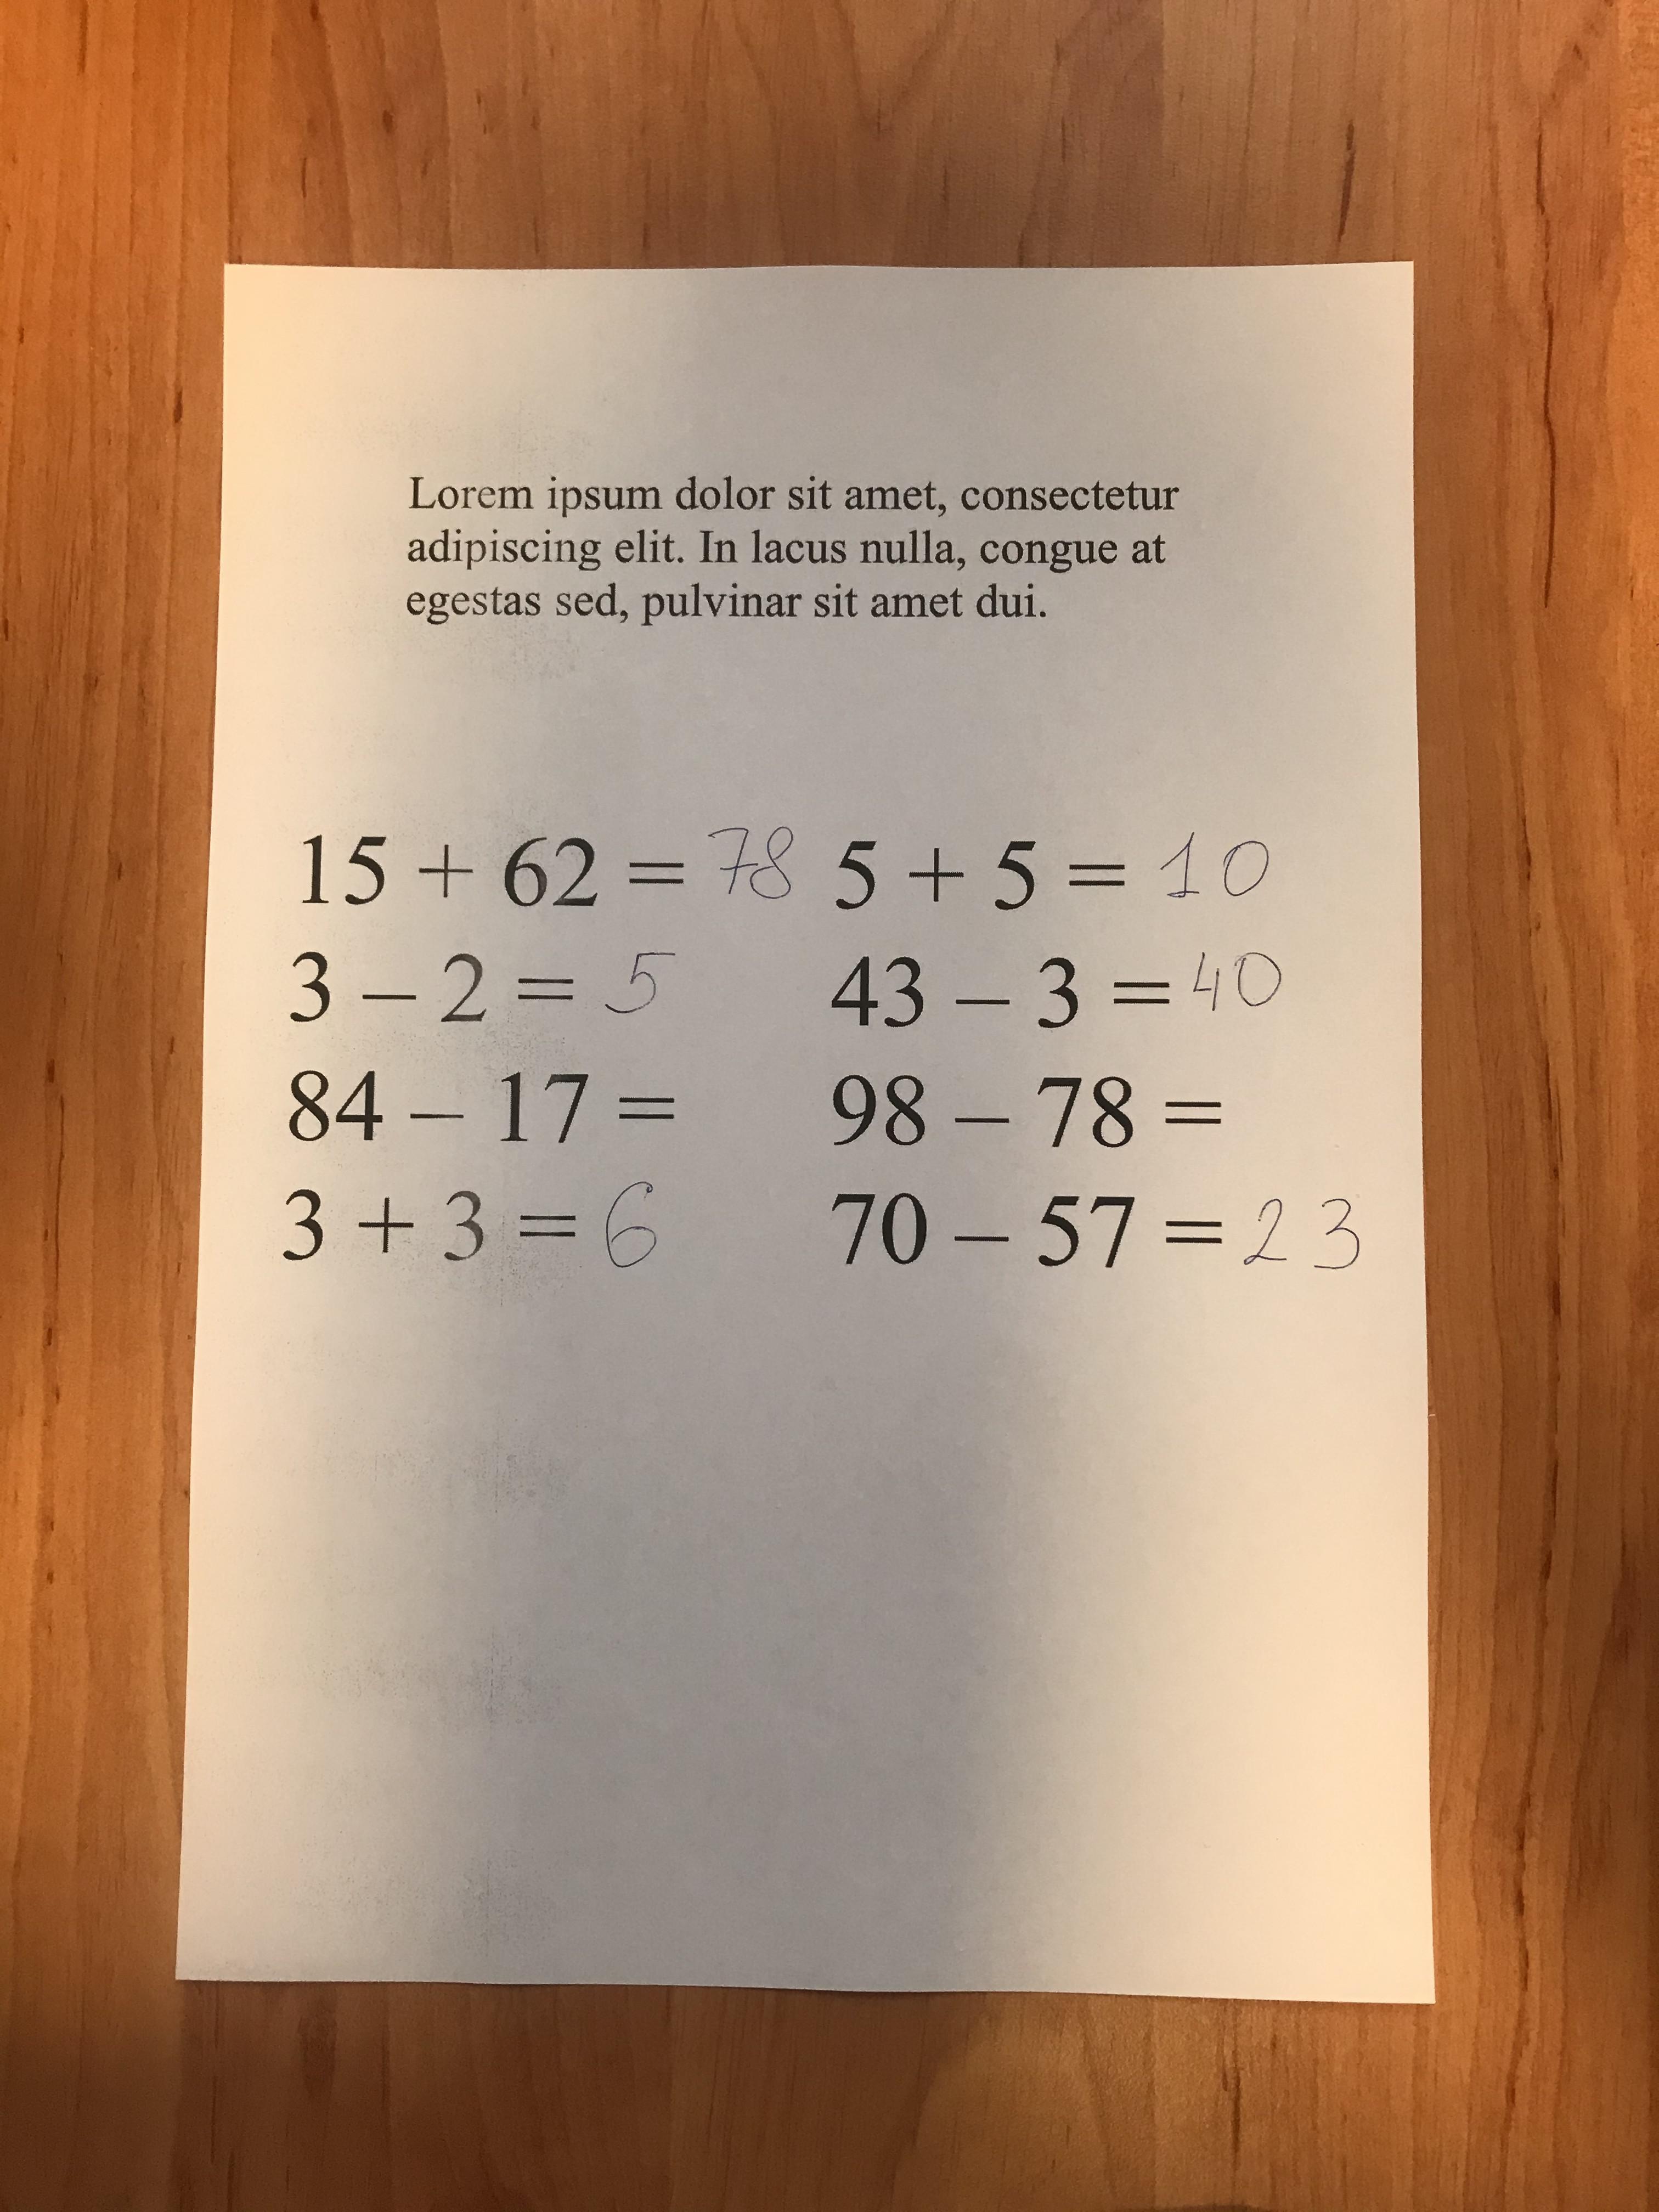 Lorem ipsum dolor sit amet, consectetur
adipiscing elit. In lacus nulla, congue at
egestas sed, pulvinar sit amet dui.
15 + 62 = 78
3 – 2 = 5
84 – 17 =
3 + 3 = 6
5 + 5 = 10
43 – 3 = 40
98 – 78 =
70 – 57 = 23